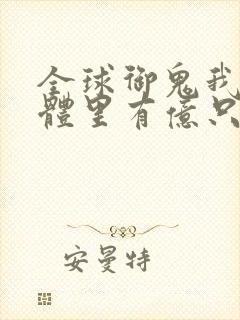 全球御鬼我
體里有億只
安曼特